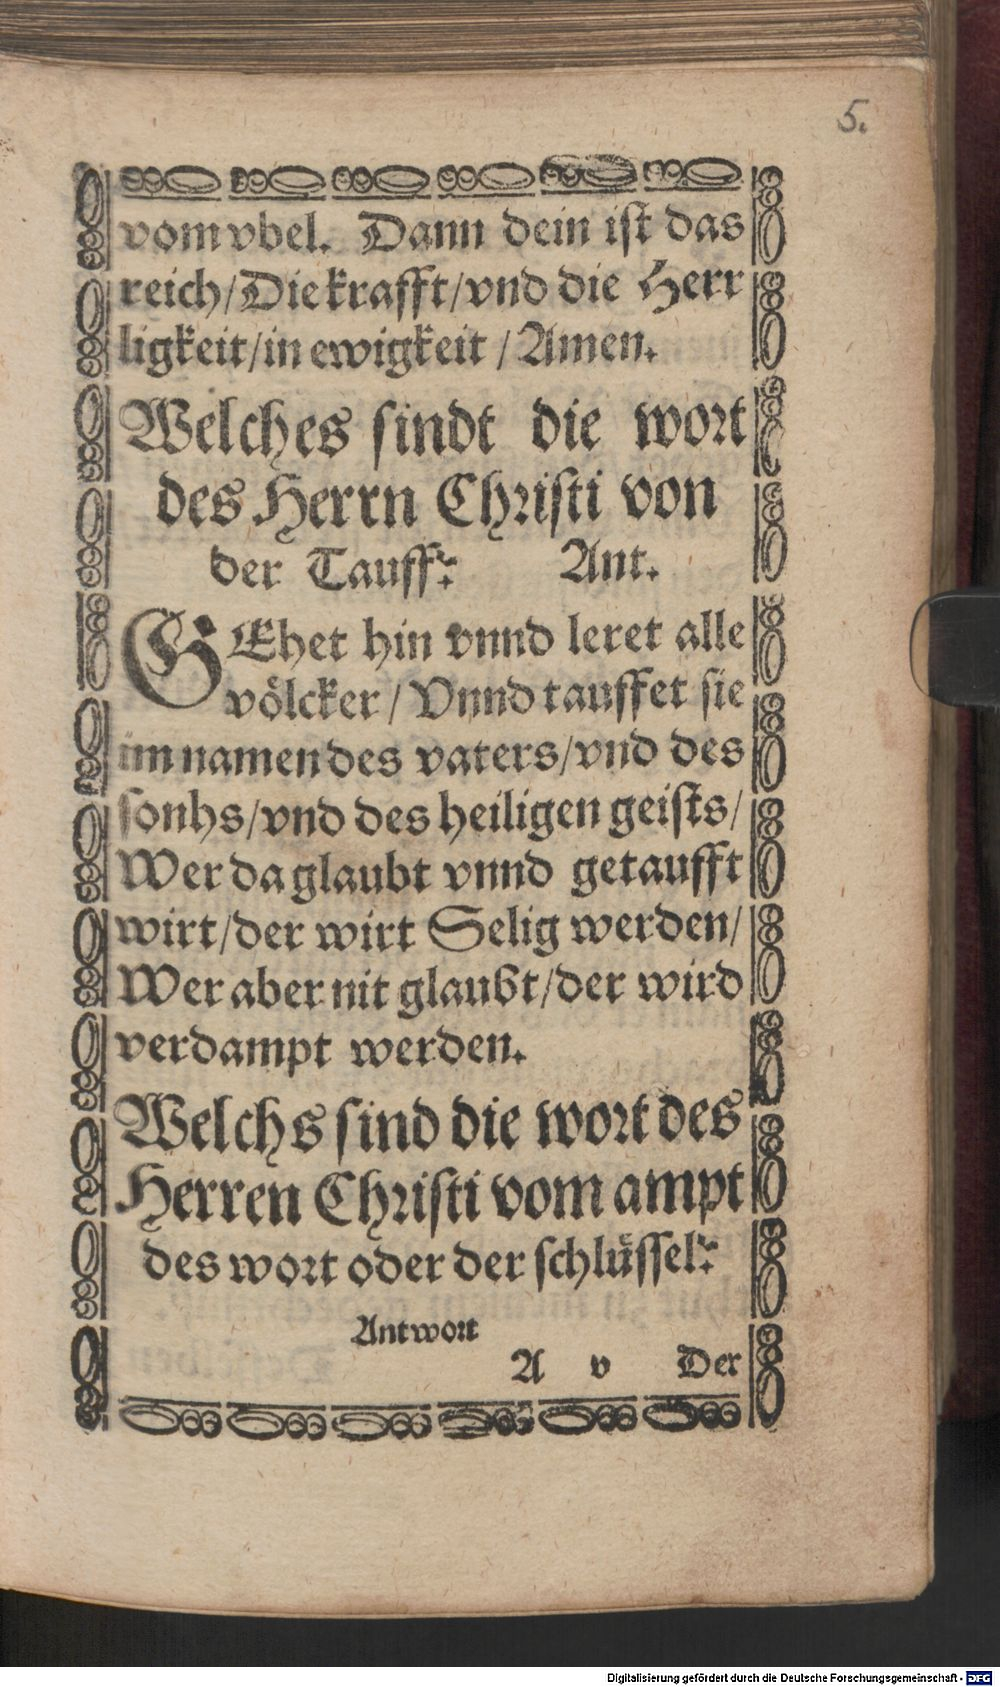 5.
vom vbel. Dann dein ist das
reich/Die krafft/vnd die Herr
ligkeit/in ewigkeit / Amen.
Welches sindt die wort
des Herrn Christi von
der Tauff? Ant.
GEhet hin vnnd leret alle
völcker / Vnnd tauffet sie
im namen des vaters/vnd des
sonhs/vnd des heiligen geists/
Wer da glaubt vnnd getaufft
wirt/der wirt Selig werden/
Wer aber nit glaubt/der wird
verdampt werden.
Welchs sind die wort des
Herren Christi vom ampt
des wort oder der schlüssel?
Antwort
A v Der
Digitalisierung gefördert durch die Deutsche Forschungsgemeinschaft - DFG